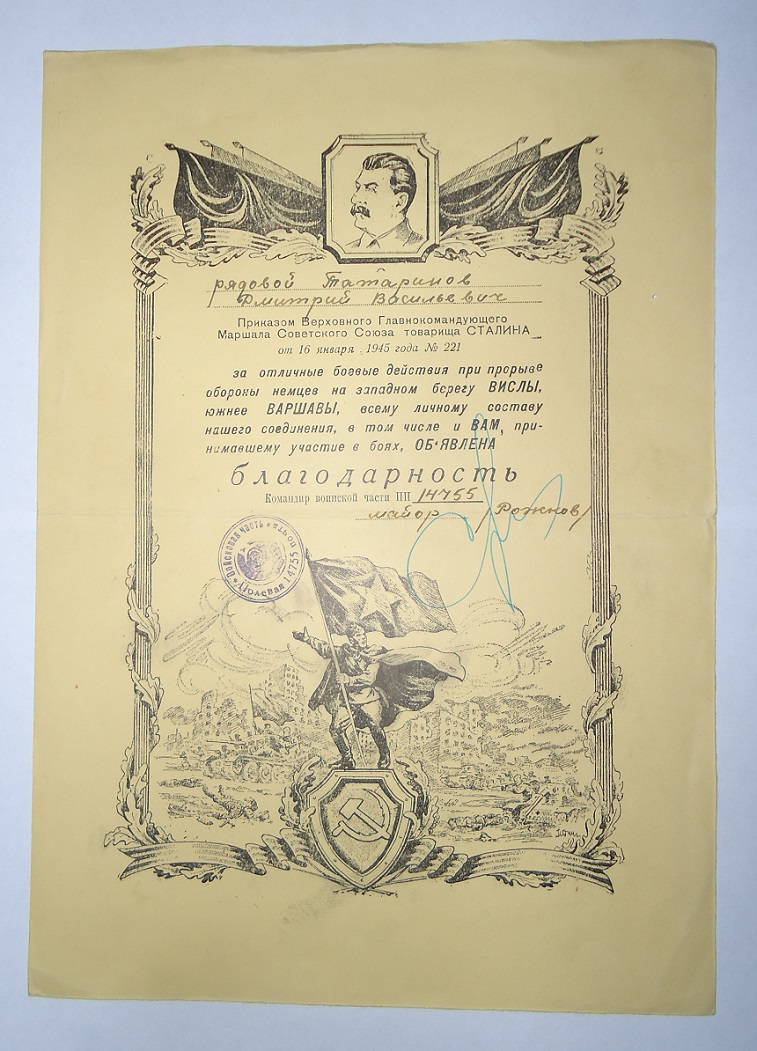 рядовой Татаринов
Дмитрий Васильевич
Приказом Верховного Главнокомандующего
Маршала Советского Союза товарища СТАЛИНА
от 16 января 1945 года № 221
за отличные боевые действия при прорыве
обороны немцев на западном берегу ВИСЛЫ,
южнее ВАРШАВЫ, всему личному составу
нашего соединения, в том числе и ВАМ, при-
нимавшему участие в боях, ОБ'ЯВЛЕНА
благодарность
Командир воинской части ПП 14755
майор /Рожнов/
Войсковая часть • Полевая почта 14755